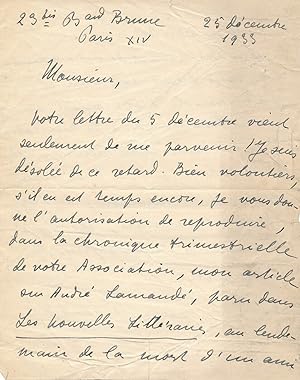 29bis Bard Brune 25 décembre
Paris XIV 1933
Monsieur,
Votre lettre du 5 décembre vient
seulement de me parvenir ! Je suis
désolée de ce retard. Bien volontiers
s'il en est temps encore, je vous don-
ne l'autorisation de reproduire,
dans la chronique trimestrielle
de votre Association, mon article
sur André Lamandé, paru dans
Les Nouvelles Littéraires, au lende-
main de la mort d'un ami